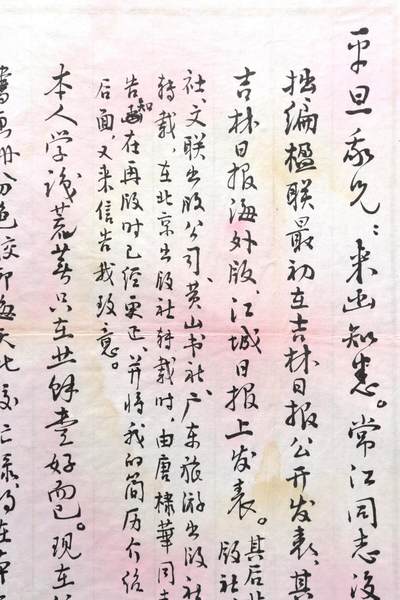 平旦承兄：来函知悉。常江同志没
拙编楹联最初在吉林日报公开发表，其
吉林日报海外版、江城日报上发表。其后北
版社
社、文联出版公司、黄山书社、广东旅游出版社
转载，在北京出版社转载时，由唐棣華同志
告知在再版时已经更正，并将我的简历介绍
后面，又来信告我致意。
本人学识荒芜只在业馀爱好而已。现在
书画册分色校印